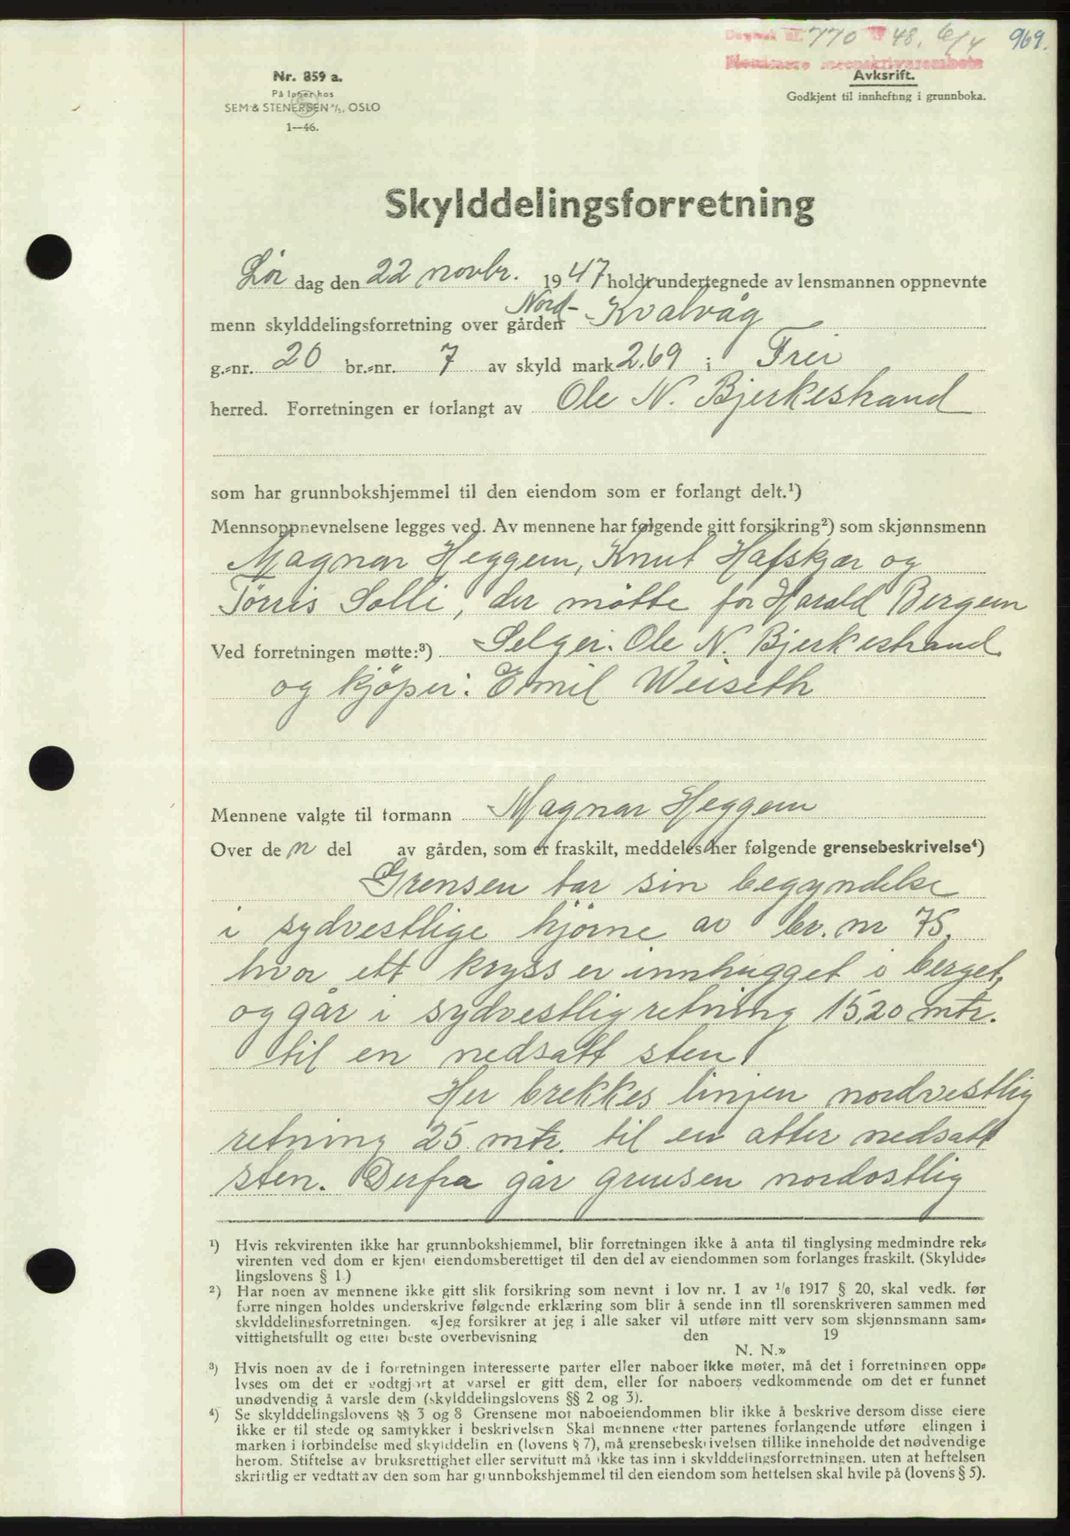 770 48. 6/4 969.
Avskrift.
Nr. 859 a.
På lager hos
Godkjent til innhefting i grunnboka.
SEM & STENERSEN A/S. OSLO
1—46.
Skylddelingsforretning
Lör dag den 22 novbr. 1947 holdt undertegnede av lensmannen oppnevnte
menn skylddelingsforretning over gården Nord- Kvalvåg
g.-nr. 20 br.-nr. 7 av skyld mark 2.69 i Frei
herred. Forretningen er forlangt av Ole N. Bjerkestrand
som har grunnbokshjemmel til den eiendom som er forlangt delt.¹)
Mennsoppnevnelsene legges ved. Av mennene har følgende gitt forsikring²) som skjønnsmenn
Magnar Heggem, Knut Hafskjær og
Törris Solli, der mötte for Harald Bergem
Ved forretningen møtte:³) Selger: Ole N. Bjerkestrand
og kjöper: Emil Weiseth
Mennene valgte til formann Magnar Heggem
Over den del av gården, som er fraskilt, meddeles her følgende grensebeskrivelse⁴)
Grensen tar sin begyndelse
i sydvestlige hjörne av br. nr 75,
hvor ett kryss er innhugget i berget,
og går i sydvestlig retning 15,20 mtr.
til en nedsatt sten.
Her brekkes linjen nordvestlig
retning 25 mtr. til en atter nedsatt
sten. Derfra går grensen nordostlig
¹) Hvis rekvirenten ikke har grunnbokshjemmel, blir forretningen ikke å anta til tinglysing medmindre rek-
virenten ved dom er kjent eiendomsberettiget til den del av eiendommen som forlanges fraskilt. (Skyldde-
lingslovens § 1.)
²) Har noen av mennene ikke gitt slik forsikring som nevnt i lov nr. 1 av 1/6 1917 § 20, skal vedk. før
forretningen holdes underskrive følgende erklæring som blir å sende inn til sorenskriveren sammen med
skylddelingsforretningen. «Jeg forsikrer at jeg i alle saker vil utføre mitt verv som skjønnsmann sam-
vittighetsfullt og etter beste overbevisning den 19
N. N.»
³) Hvis noen av de i forretningen interesserte parter eller naboer ikke møter, må det i forretningen opp-
lyses om det er godtgjort at varsel er gitt dem, eller for naboers vedkommende om det er funnet
unødvendig å varsle dem (skylddelingslovens §§ 2 og 3).
⁴) Se skylddelingslovens §§ 3 og 8 Grensene mot naboeiendommen blir ikke å beskrive dersom disse eiere
ikke er til stede og samtykker i beskrivelsen Skal mennene etter partenes forlangende utføre elingen i
marken i forbindelse med skylddelingen (lovens § 7), må grensebeskrivelsen tillike inneholde det nødvendige
herom. Stiftelse av bruksrettighet eller servitutt må ikke tas inn i skylddelingsforretningen. uten at heftelsen
skriftlig er vedtatt av den som har grunnbokshjemmel til den eiendom som heftelsen skal hvile på (lovens § 5).